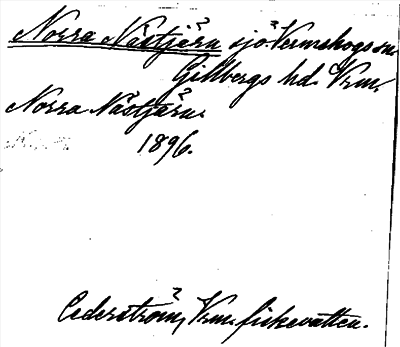 Norra Nästjärn sjö. Värmskogs sn.
Gillbergs hd. Vrm.
Norra Nästjärn.
1896.
Cederström, Vrm. fiskevatten.